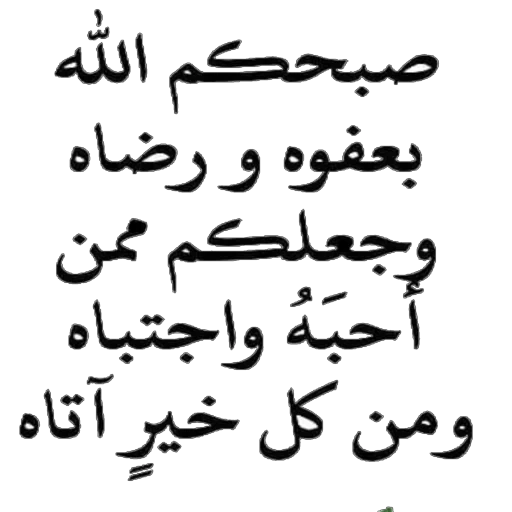 صبحكم الله
بعفوه و رضاه
وجعلكم ممن
أَحبَهُ واجتباه
ومن كل خيرٍ آتاه